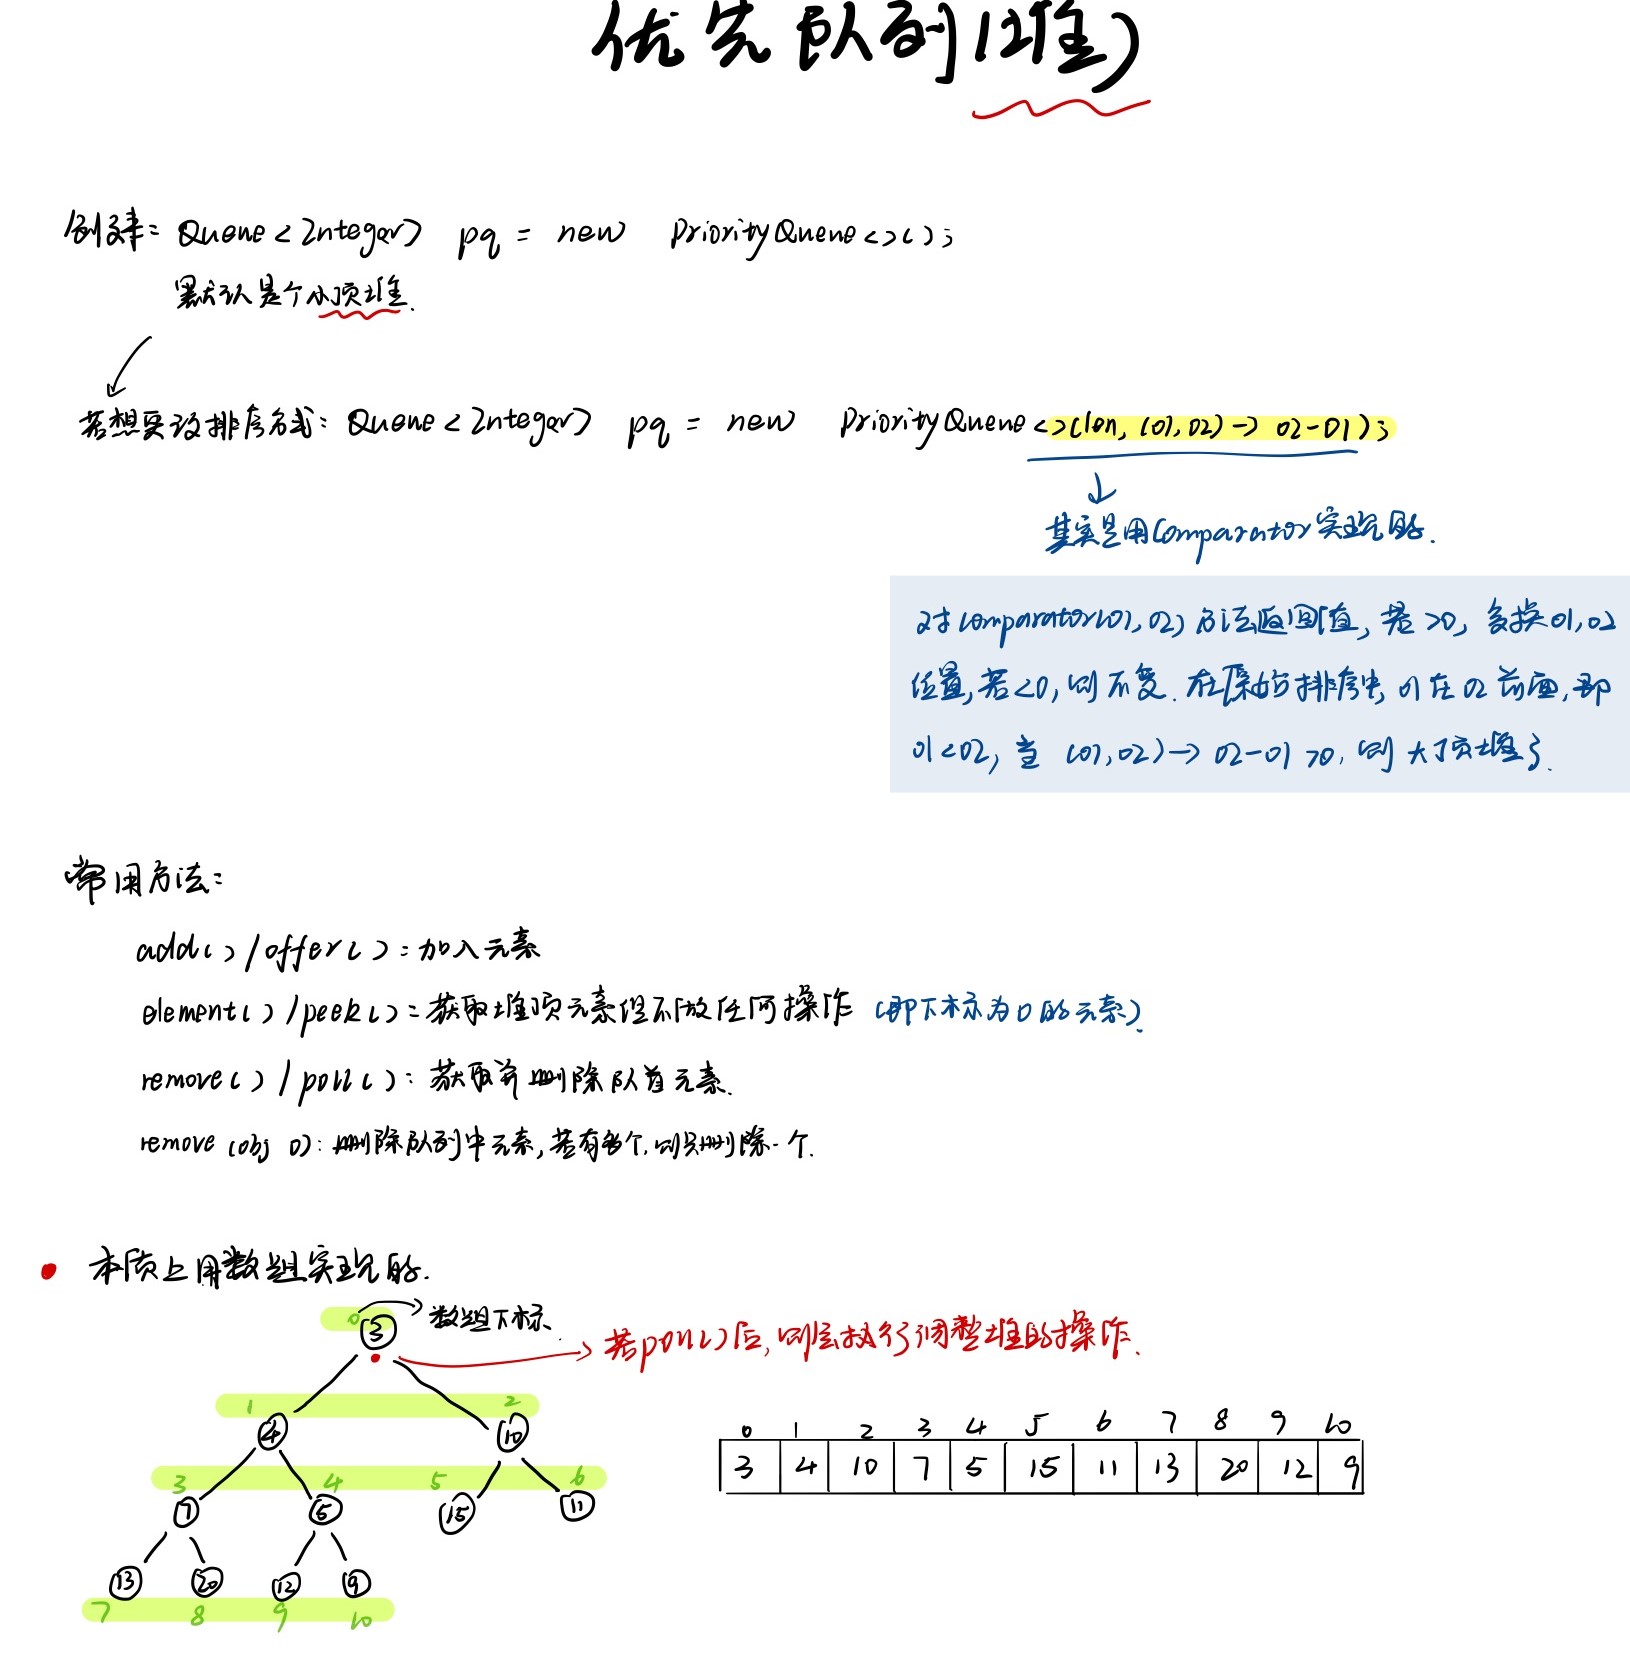 优先队列(堆)
创建: Queue<Integer> pq = new PriorityQueue<>();
默认是个小顶堆.
若想更改排序方式: Queue<Integer> pq = new PriorityQueue<>(len, (o1,o2)-> o2-o1);
其实是用Comparator实现的.
对comparator(o1,o2)方法返回值,若>0,交换o1,o2
位置,若<0,则不变.在原始的排序中,o1在o2前面,即
o1<o2,当 (o1,o2)-> o2-o1 >0,则大顶堆了.
常用方法:
add()/offer():加入元素
element()/peek():获取堆顶元素但不做任何操作 (即下标为0的元素).
remove()/poll():获取并删除队首元素.
remove(obj o):删除队列中元素,若有多个,则只删除一个.
本质上用数组实现的.
0 数组下标.
3
若poll()后,则会执行调整堆的操作.
1 2
4 10
0 1 2 3 4 5 6 7 8 9 10
3 4 10 7 5 15 11 13 20 12 9
3 4 5 6
7 5 15 11
13 20 12 9
7 8 9 10